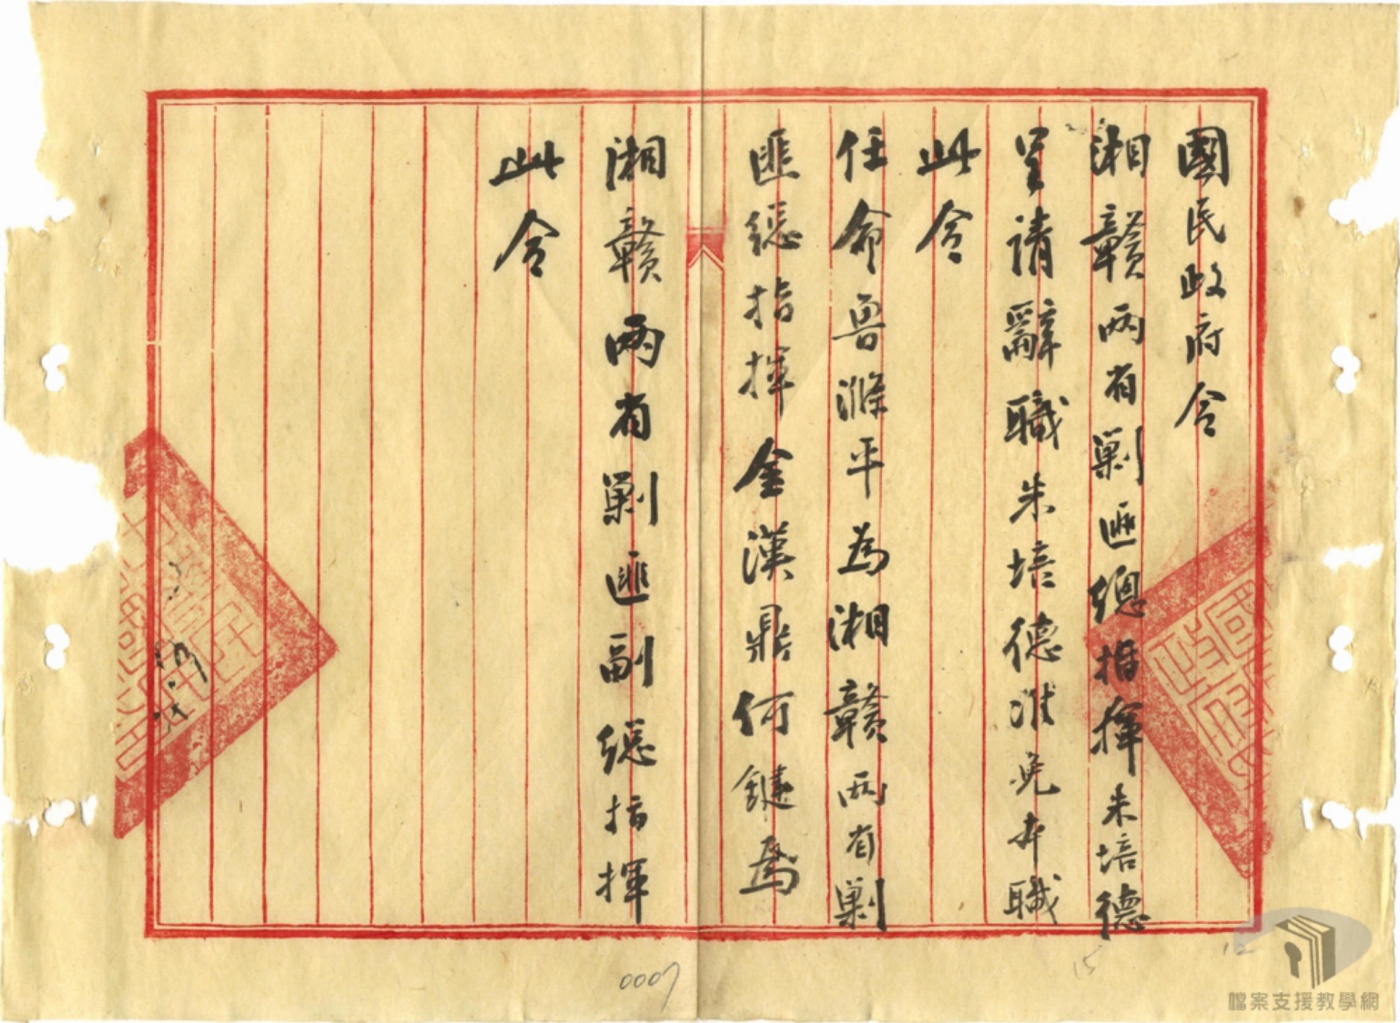 國民政府令
湘贛兩省剿匪總指揮朱培德
呈請辭職朱培德准免本職
此令
任命魯滌平為湘贛兩省剿
匪總指揮金漢鼎何鍵為
湘贛兩省剿匪副總指揮
此令
0007
15
12
檔案支援教學網